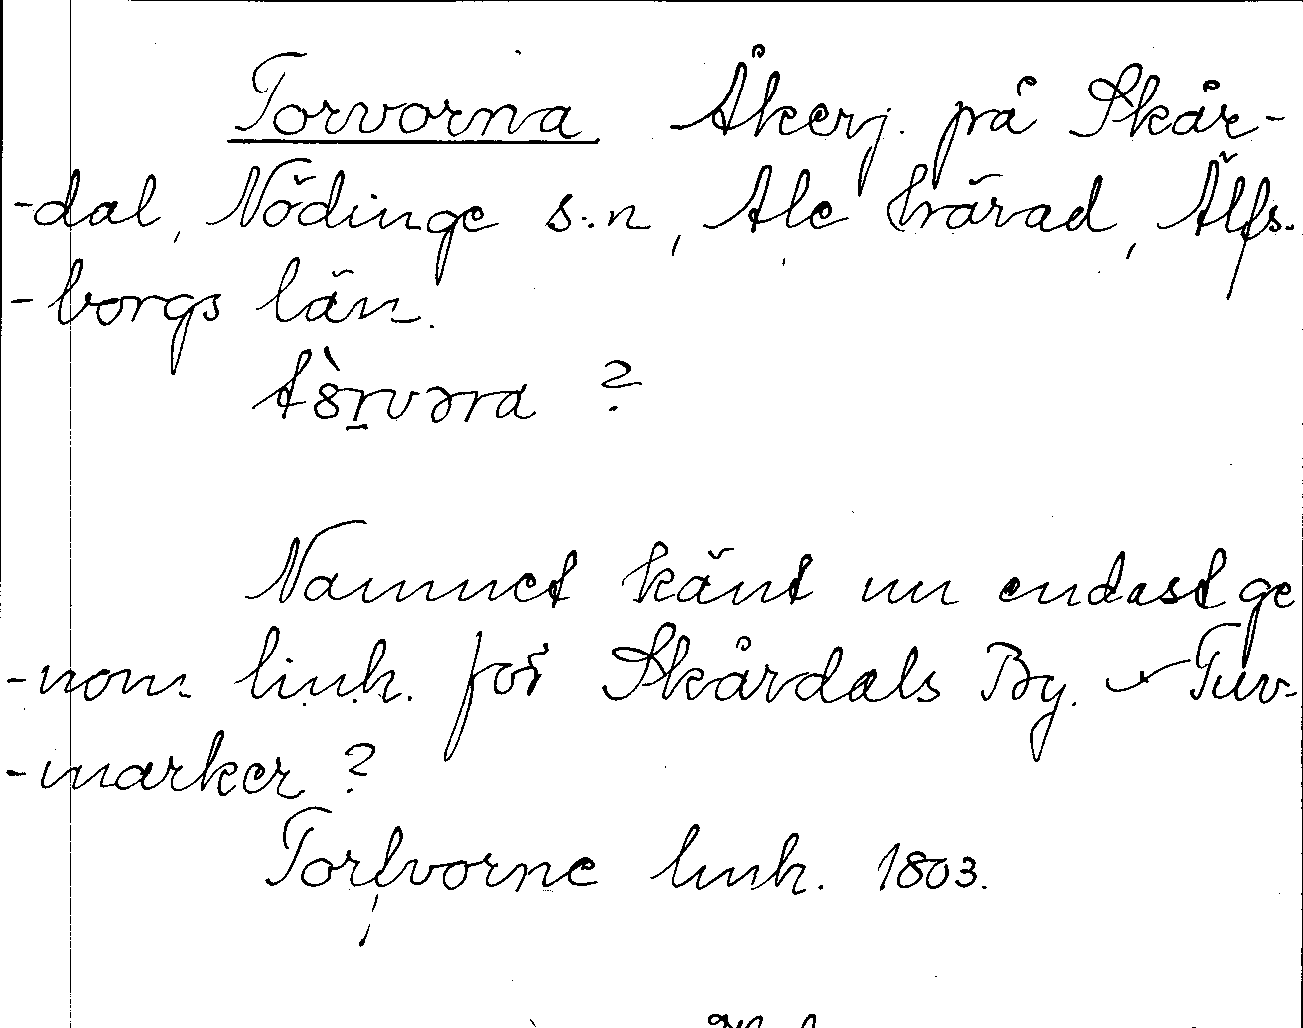 Torvorna Åkerj. på Skår-
-dal, Nödinge s:n, Ale härad, Älfs-
-borgs län.
Namnet känt nu endast ge
-nom link. för Skårdals By.
-marker?
Torfvorne link. 1803.